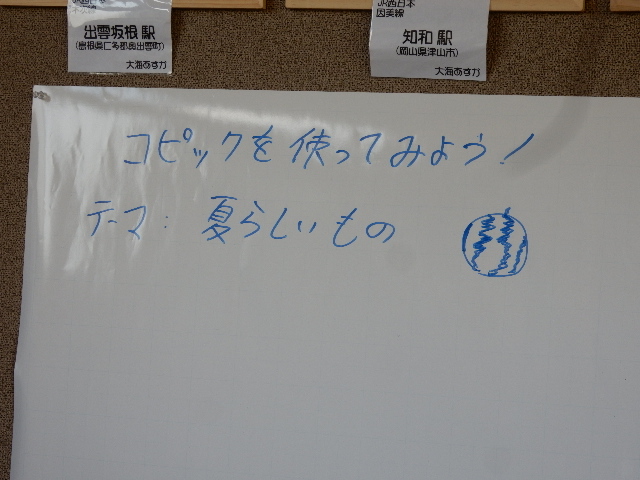 出雲坂根 駅
(島根県仁多郡奥出雲町)
大海あすか
JR西日本
因美線
知和 駅
(岡山県津山市)
大海あすか
コピックを使ってみよう!
テーマ: 夏らしいもの